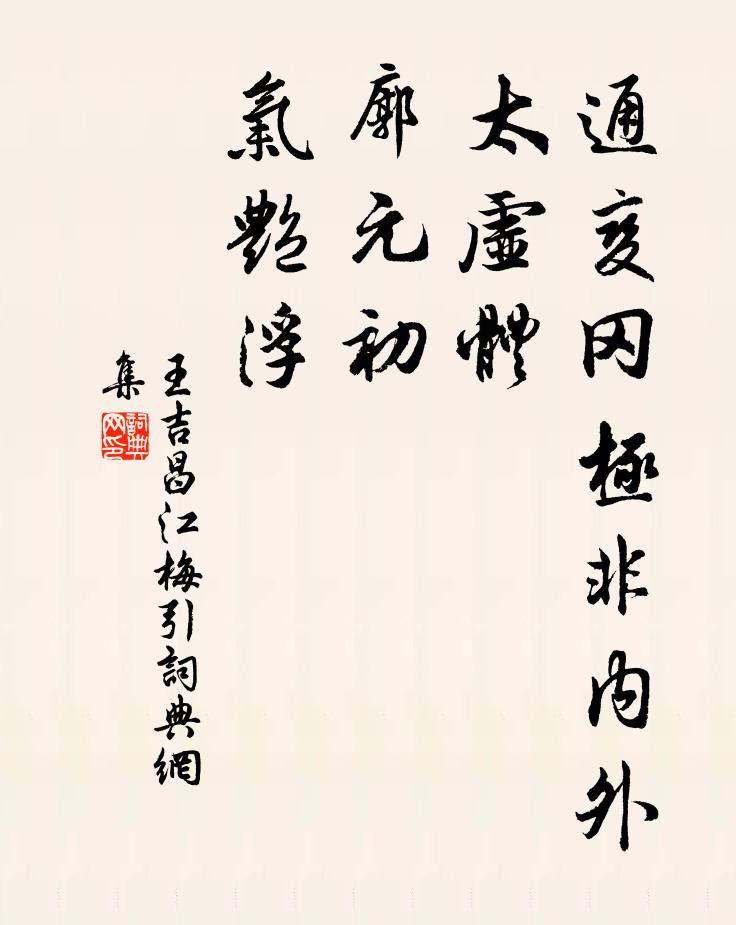 通变罔極非内外
太虛體
廓元初
氣艷浮
王吉昌江梅引詞典網
集
詞典
网印